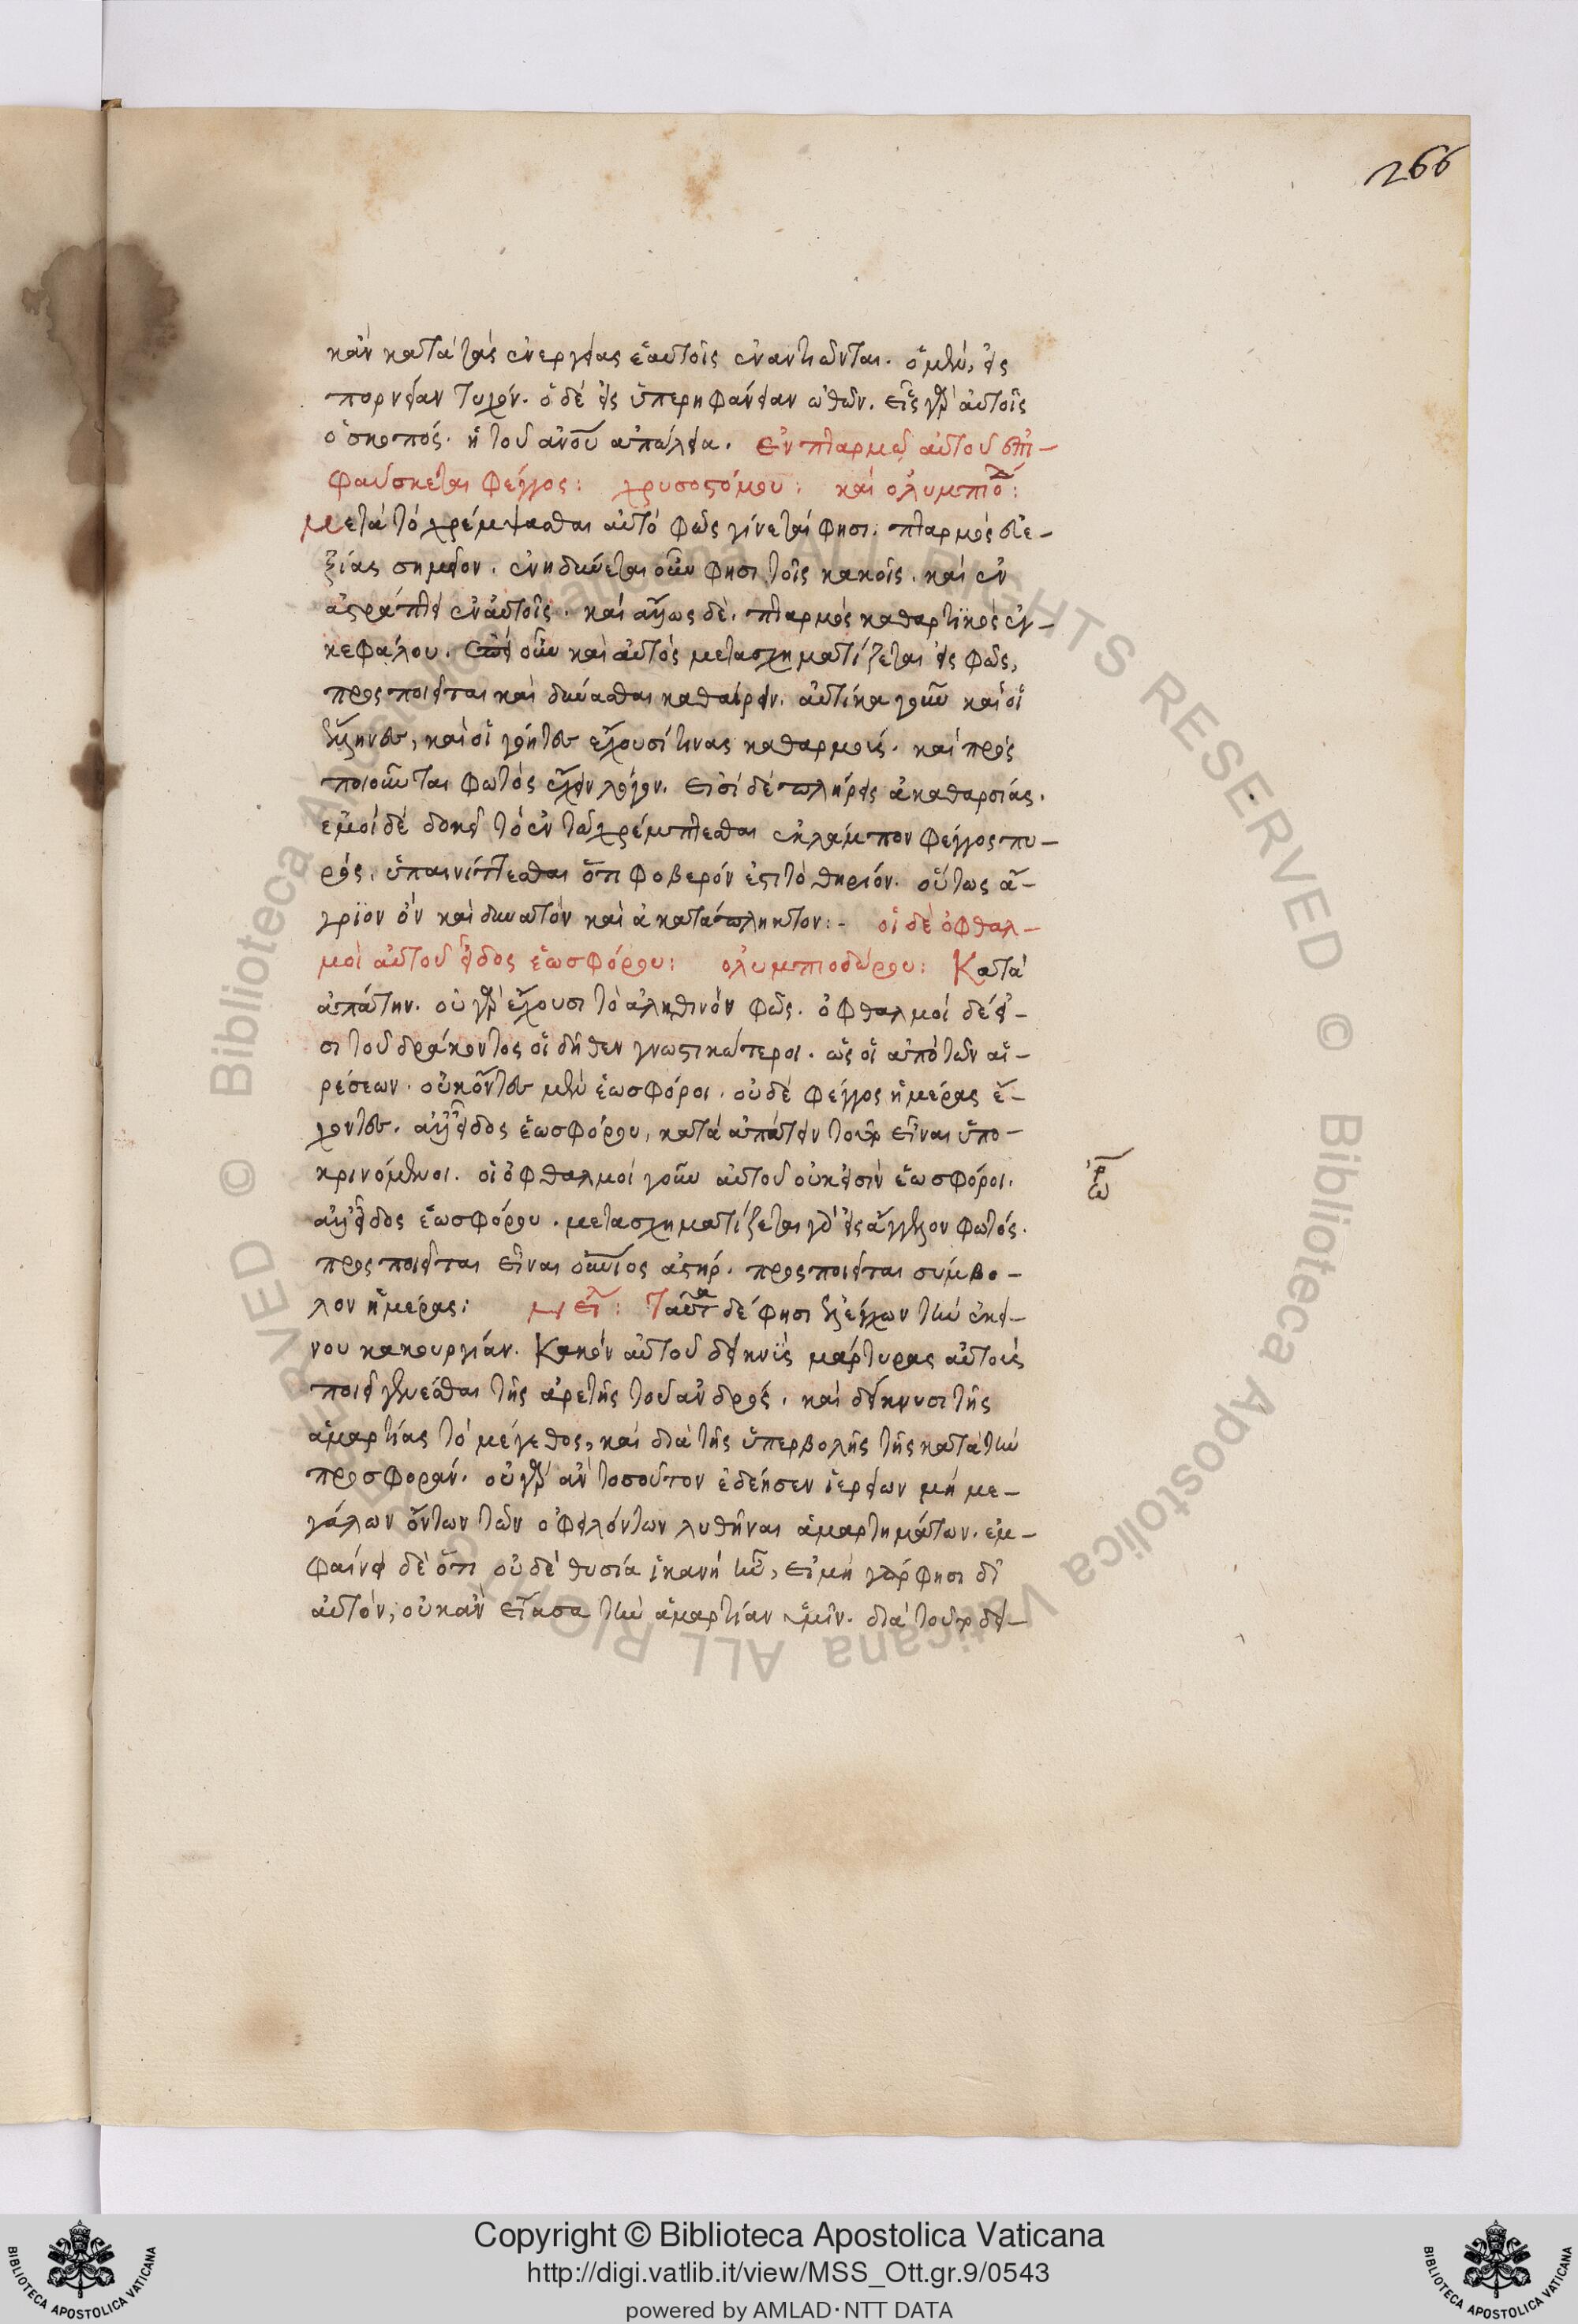 266
κἂν κατὰ τὰς ἐνεργείας ἑαυτοῖς ἐναντιῶνται. ὁ μὲν, εἰς
πορνείαν τυχόν. ὁ δὲ εἰς ὑπερηφάνειαν ὠθῶν. εἷς γὰρ αὐτοῖς
ὁ σκοπός. ἡ τοῦ ἀνοῦ ἀπώλεια. Ἐν πταρμῷ αὐτοῦ ἐπι-
φαύσκεται φέγγος: χρυσοστόμου: καὶ ὀλυμπιοδ:
Μετὰ τὸ χρέμψασθαι αὐτὸ φῶς γίνεταί φησι. πταρμὸς εὐε-
ξίας σημεῖον. ἐνηδύνεται οὖν φησι τοῖς κακοῖς. καὶ ἐν
ἀστράπτει ἐν αὐτοῖς. καὶ ἄλλως δὲ. πταρμὸς καθαρτικὸς ἐγ-
κεφάλου. οὖν καὶ αὐτὸς μετασχηματίζεται εἰς φῶς,
προσποιεῖται καὶ δύνασθαι καθαίρειν. αὐτίκα γοῦν καὶ οἱ
ἕλληνες, καὶ οἱ γόητες ἔχουσί τινας καθαρμούς. καὶ προς
ποιοῦνται φωτὸς ἔχειν λόγον. εἰσὶ δὲ πλήρεις ἀκαθαρσίας.
ἐμοὶ δὲ δοκεῖ τὸ ἐν τῷ χρέμπτεσθαι ἐκλάμπον φέγγος πυ-
ρός. ὑπαινίττεσθαι ὅτι φοβερόν ἐστι τὸ θηρίον. οὕτως ἄ-
γριον ὂν καὶ δυνατὸν καὶ ἀκατάπληκτον:- οἱ δὲ ὀφθαλ-
μοὶ αὐτοῦ εἶδος ἑωσφόρου: ὀλυμπιοδώρου: Κατὰ
ἀπάτην. οὐ γὰρ ἔχουσι τὸ ἀληθινὸν φῶς. ὀφθαλμοὶ δέ εἰ-
σι τοῦ δράκοντος οἱ δῆθεν γνωστικώτεροι. ὡς οἱ ἀπὸ τῶν αἱ-
ρέσεων. οὐκ ὄντες μὲν ἑωσφόροι. οὐδὲ φέγγος ἡμέρας ἔ-
χοντες. ἀλλ' εἶδος ἑωσφόρου, κατὰ ἀπάτην τοῦτο εἶναι ὑπο-
κρινόμενοι. οἱ ὀφθαλμοὶ γοῦν αὐτοῦ οὐκ εἰσὶν ἑωσφόροι.
ὡρ
ἀλλ' εἶδος ἑωσφόρου. μετασχηματίζεται γὰρ εἰς ἄγγελον φωτός.
προσποιεῖται εἶναι οὐνιος ἀστήρ. προσποιεῖται σύμβο-
λον ἡμέρας: Ταῦτα δέ φησι ἐξελέγχων τὴν ἐκεί-
νου κακουργίαν. Κακὸν αὐτοῦ δεικνὺς μάρτυρας αὐτοὺς
ποιεῖ γενέσθαι τῆς ἀρετῆς τοῦ ἀνδρός. καὶ δείκνυσι τῆς
ἁμαρτίας τὸ μέγεθος, καὶ διὰ τῆς ὑπερβολῆς τῆς κατὰ τὴν
προσφοράν. οὐ γὰρ ἂν τοσούτον ἐδέησεν ἱερείων μὴ με-
γάλων ὄντων τῶν ὀφειλόντων λυθῆναι ἁμαρτημάτων. ἐμ-
φαίνει δὲ ὅτι οὐδὲ θυσία ἱκανὴ ἦν, εἰ μὴ γάρ φησι δι'
αὐτόν, οὐκ ἂν εἴασα τὴν ἁμαρτίαν ὑμῖν. διὰ τοῦτο δεί-
Copyright © Biblioteca Apostolica Vaticana
http://digi.vatlib.it/view/MSS_Ott.gr.9/0543
powered by AMLAD·NTT DATA
BIBLIOTECA APOSTOLICA VATICANA
BIBLIOTECA APOSTOLICA VATICANA
© Biblioteca Apostolica Vaticana ALL RIGHTS RESERVED © Biblioteca Apostolica Vaticana ALL RIGHTS RESERVED